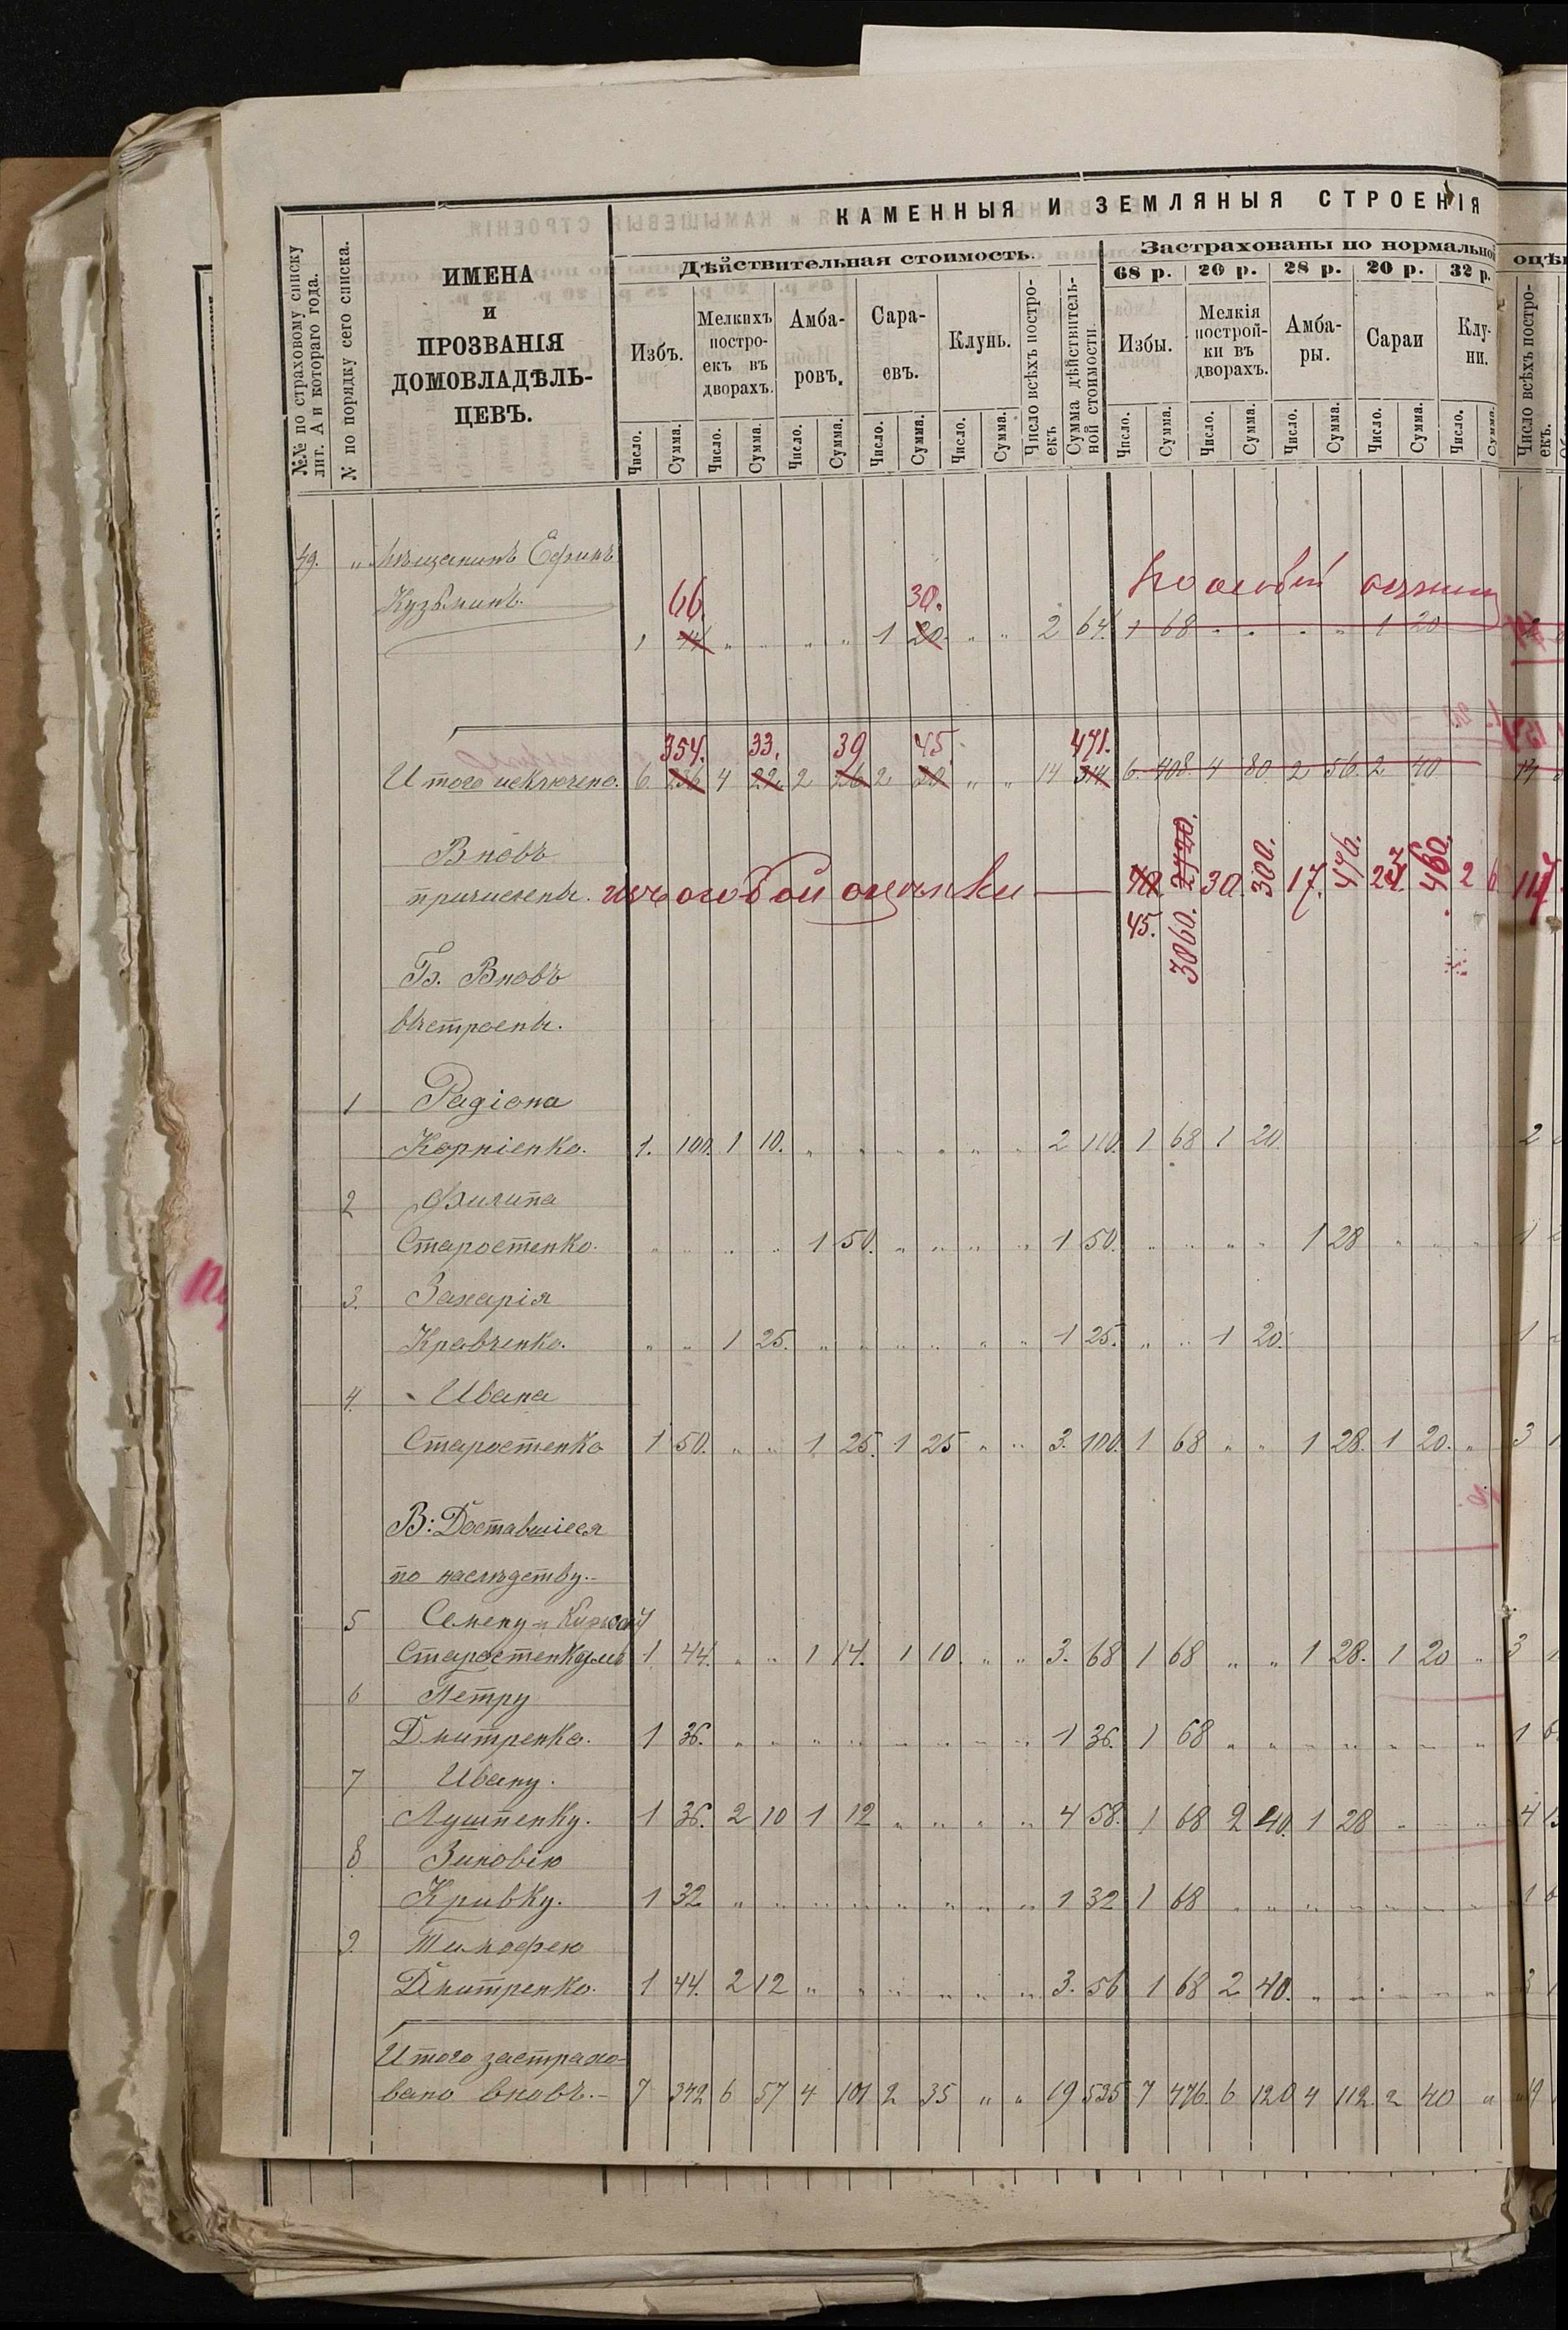 КАМЕННЫЯ И ЗЕМЛЯНЫЯ СТРОЕНІЯ
№№ по страховому списку лит. А и котораго года.
№ по порядку сего списка.
ИМЕНА
и
ПРОЗВАНІЯ
ДОМОВЛАДѢЛЬ-
ЦЕВЪ.
Дѣйствительная стоимость.
Застрахованы по нормальной оцѣн
68 р. 20 р. 28 р. 20 р. 32 р.
Избъ.
Мелкихъ постро-екъ въ дворахъ.
Амба-ровъ.
Сара-евъ.
Клунь.
Число всѣхъ постро-екъ.
Сумма дѣйствитель-ной стоимости.
Избы.
Мелкія построй-ки въ дворахъ.
Амба-ры.
Сараи
Клу-ни.
Число всѣхъ постро-екъ.
Число. Сумма. Число. Сумма. Число. Сумма. Число. Сумма. Число. Сумма. Число. Сумма. Число. Сумма. Число. Сумма. Число. Сумма. Число. Сумма.
49. " Мѣщанинъ Ефимъ
Кузьминъ. 66. 30. По особой оцѣнки
1 44 " " " " 1 20 " " 2 64. 1 68 " " " " 1 20
354. 33. 39 45. 471.
Итого исключено. 6 236 4 22 2 26 2 30 " " 14 314 6 408 4 80 2 56. 2 40 14
Вновь
причислены. изъ особой оцѣнки — 40 2720. 30. 300. 17. 476. 23 460. 2 6 117
45. 3060.
Б. Вновь
выстроены.
1 Радіона
Корніенко. 1. 100. 1 10. " " " " " " 2 110. 1 68 1 20. 2
2 Филипа
Старостенко. " " " " 1 50. " " " " 1 50. " " " " 1 28 " " " 1
3. Захарія
Кравченко. " " 1 25. " " " " " " 1 25. " " 1 20. 1
4. Ивана
Старостенко 1 50. " " 1 25. 1 25 " " 3. 100. 1 68 " " 1 28. 1 20. " 3 1
В: Доставшіеся
по наслѣдству.-
5 Семену и
Старостенкамъ 1 44. " " 1 14. 1 10. " " 3. 68 1 68 " " 1 28. 1 20 " 3 1
6 Петру
Дмитренко. 1 36. " " " " " " " " 1 36. 1 68 " " " " " " " 1 6
7 Ивану.
Лушпенку. 1 36. 2 10 1 12 " " " " 4 58. 1 68 2 40. 1 28 " " " 4 1
8 Зиновію
Кривку. 1 32 " " " " " " " " 1 32 1 68 " " " " " " " 1 6
9. Тимофею
Дмитренко. 1 44. 2 12 " " " " " " 3. 56 1 68 2 40. " " " " " 3
Итого застрахо-
вано вновь.- 7 342 6 57 4 101 2 35 " " 19 535 7 476. 6 120 4 112. 2 40 " " 19